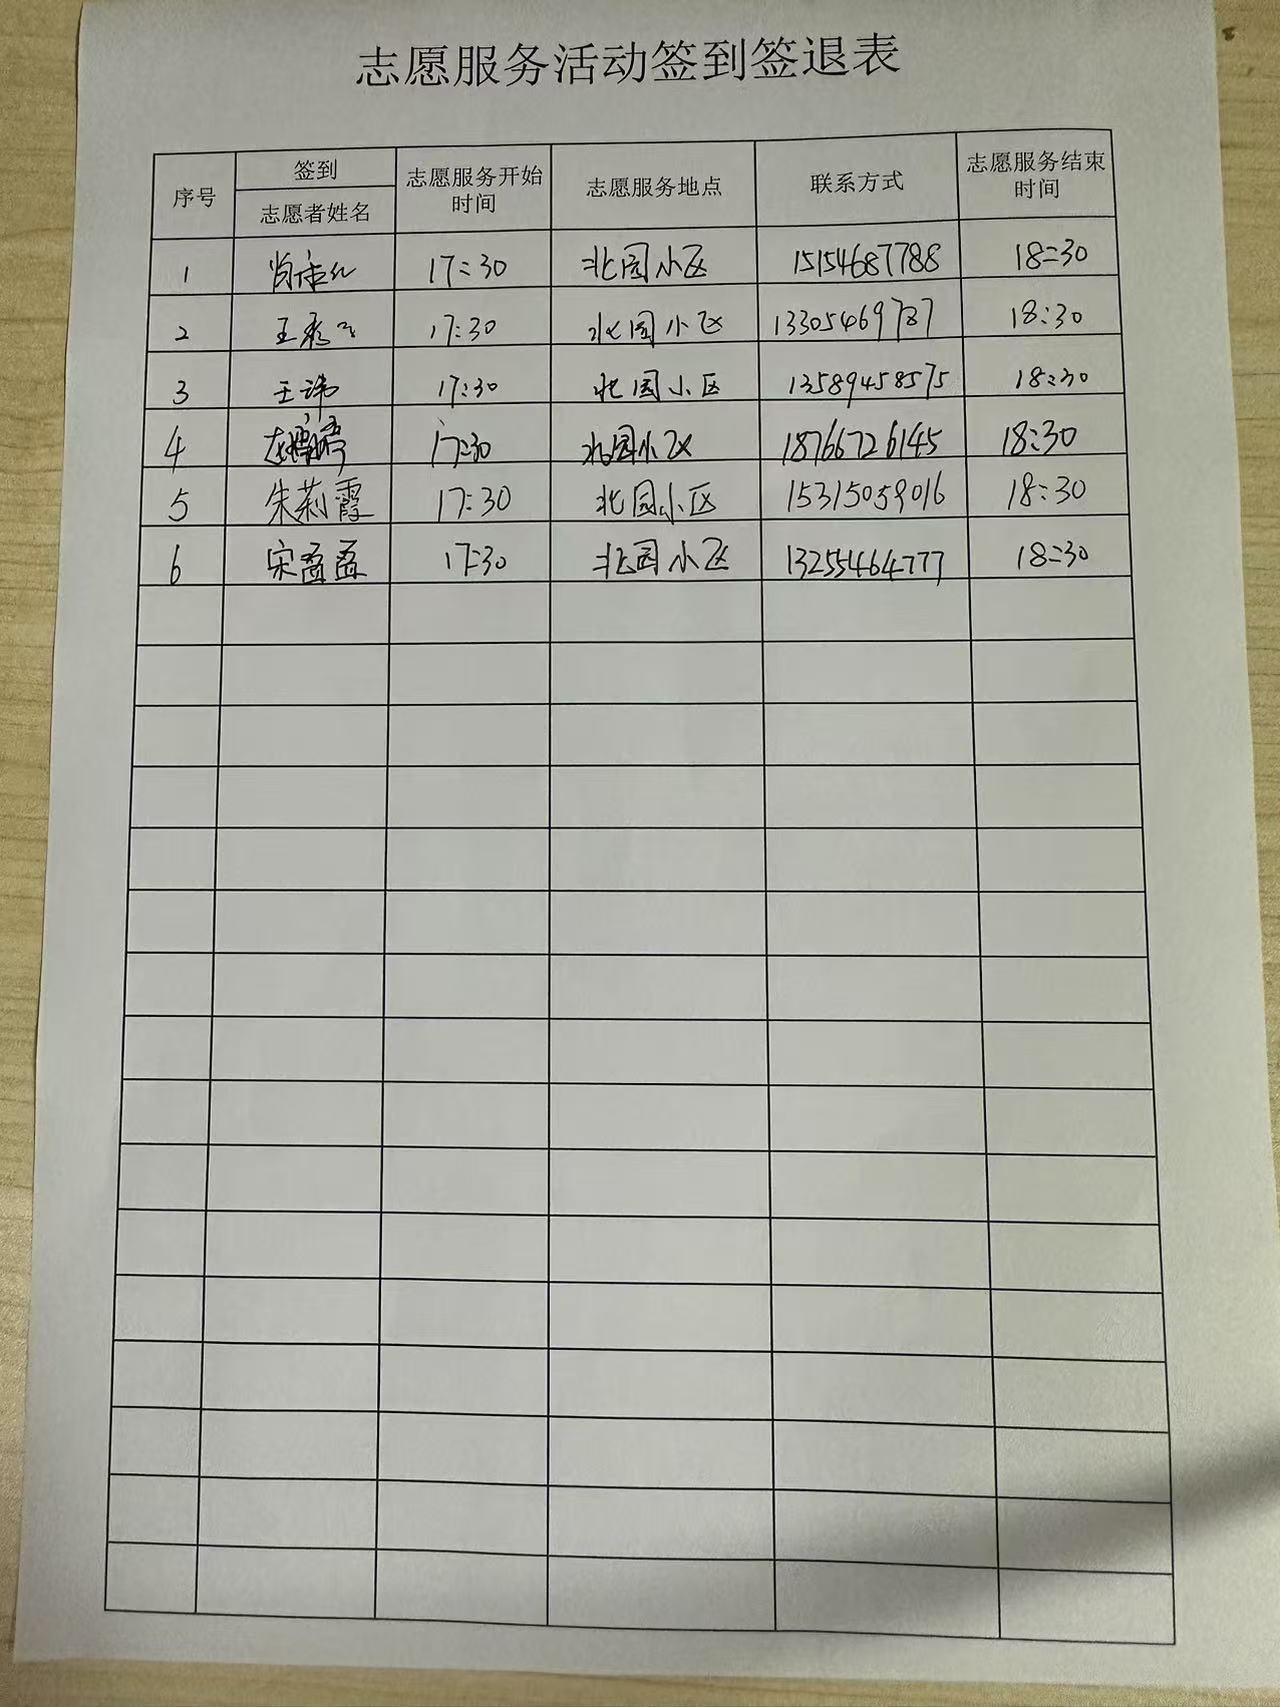 志愿服务活动签到签退表
序号 签到 志愿者姓名 志愿服务开始时间 志愿服务地点 联系方式 志愿服务结束时间
1 17:30 北园小区 15154687788 18:30
2 17:30 北园小区 13305469787 18:30
3 王沛 17:30 北园小区 13589458575 18:30
4 17:30 北园小区 18766726145 18:30
5 朱莉霞 17:30 北园小区 15315059016 18:30
6 宋盈盈 17:30 北园小区 13255464777 18:30